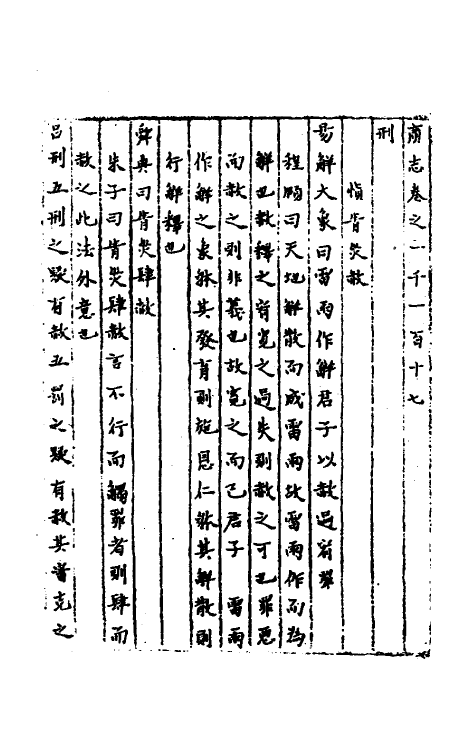 肅志卷之一千一百十七
刑
慎眚災赦
易解大象曰雷雨作解君子以赦過宥罪
程頤曰天地解散而成雷雨故雷雨作而為
解也赦釋之宥寬之過失則赦之可也罪惡
而赦之則非義也故寬之而已君子 雷雨
作解之象體其發育則施恩仁體其解散則
行解釋也
舜典曰眚災肆赦
朱子曰眚災肆赦言不行而觸罪者則肆而
赦之此法外意也
呂刑五刑之疑有赦五罰之疑有赦其審克之